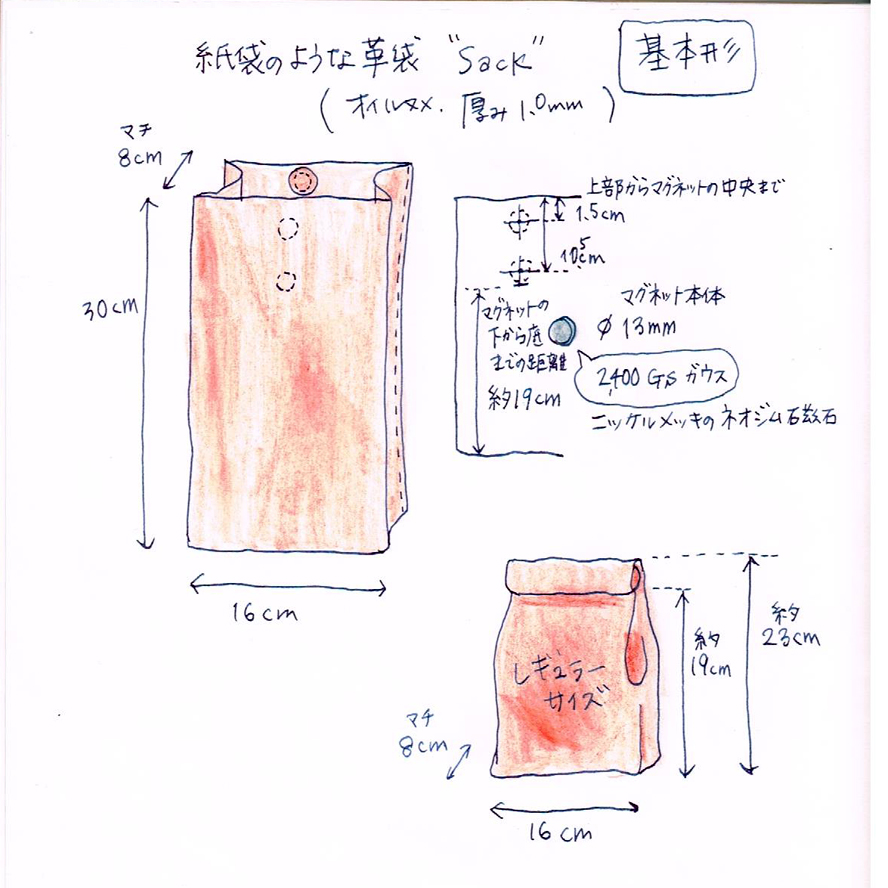 紙袋のような革袋 "Sack"
基本形
(オイルヌメ. 厚み 1.0mm)
マチ
8cm
30cm
16cm
上部からマグネットの中央まで
1.5cm
5
マグネットの
下から底
までの距離
約19cm
マグネット本体
φ 13mm
2,400 GS ガウス
ニッケルメッキのネオジム石磁石
レギュラー
サイズ
約
19cm
約
23cm
マチ
8cm
16cm